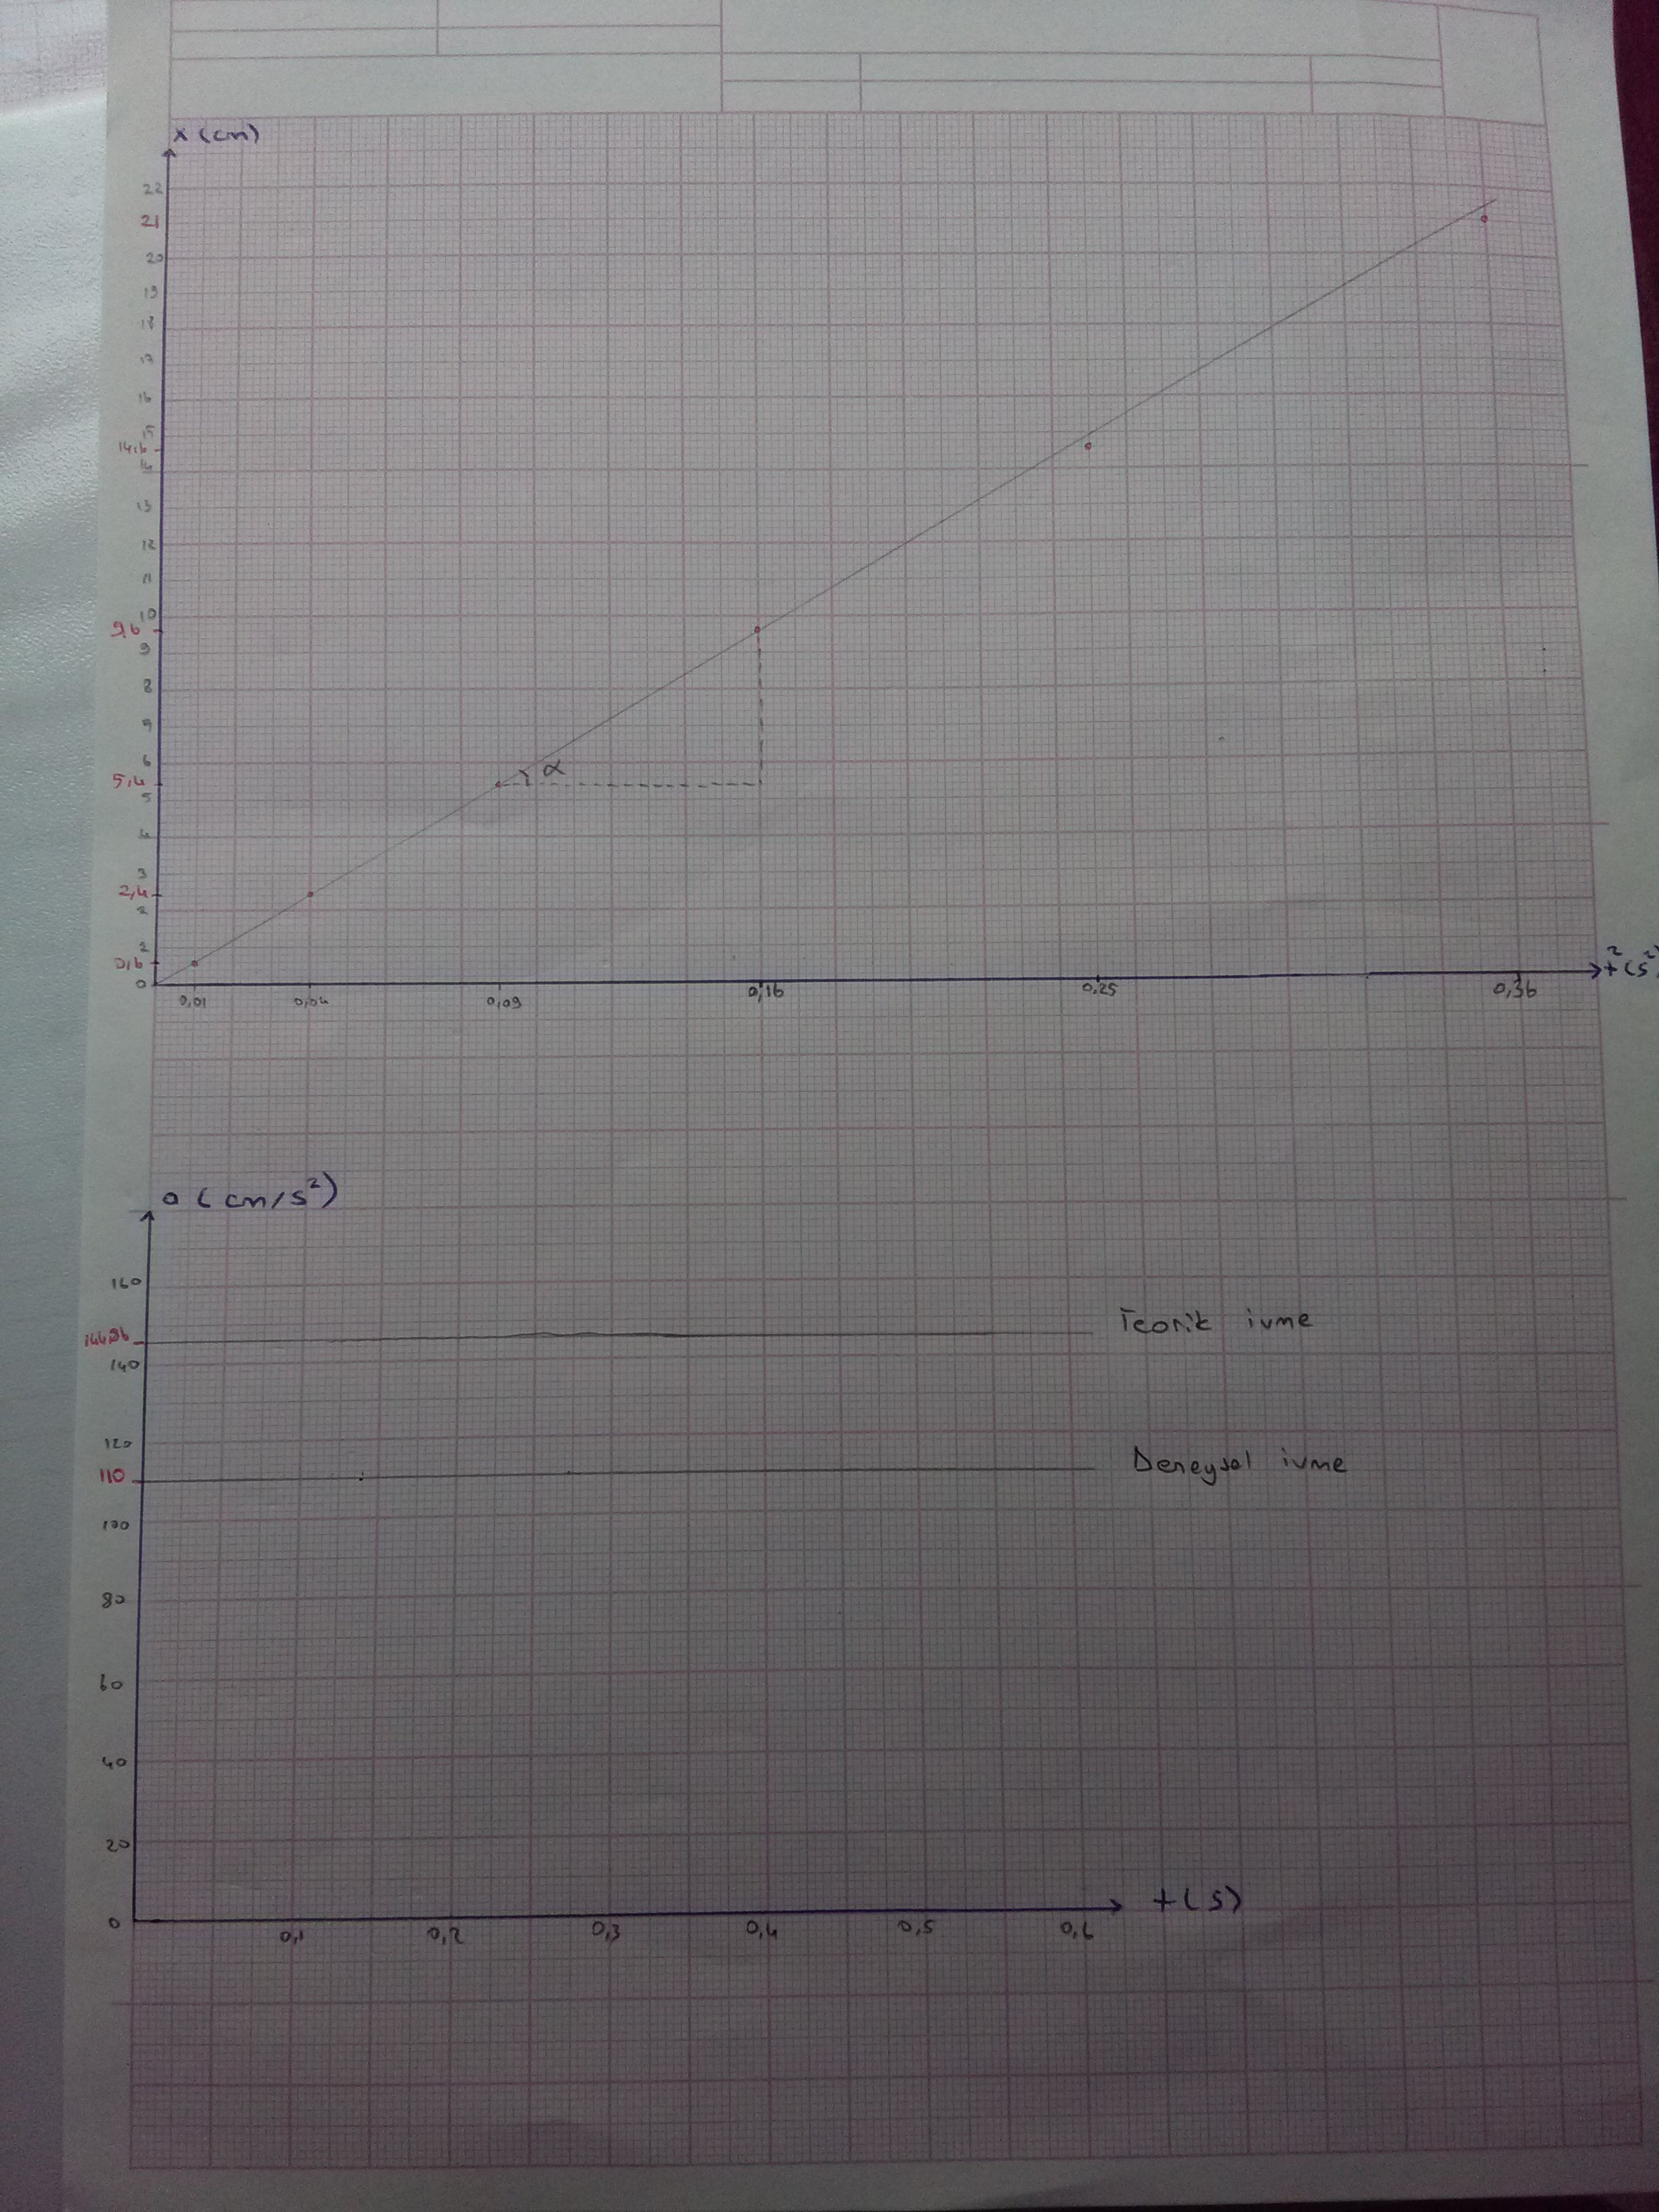 x (cm)
22
21
20
19
18
17
16
15
14,6
14
13
12
11
10
9,6
9
8
9
6
5,4
5
4
3
2,4
2
2
0,6
0
0,01 0,04 0,09 0,16 0,25 0,36
t² (s²)
α
a (cm/s²)
160
140
120
110
100
80
60
40
20
0
Teorik ivme
Deneysel ivme
0,1 0,2 0,3 0,4 0,5 0,6
t (s)